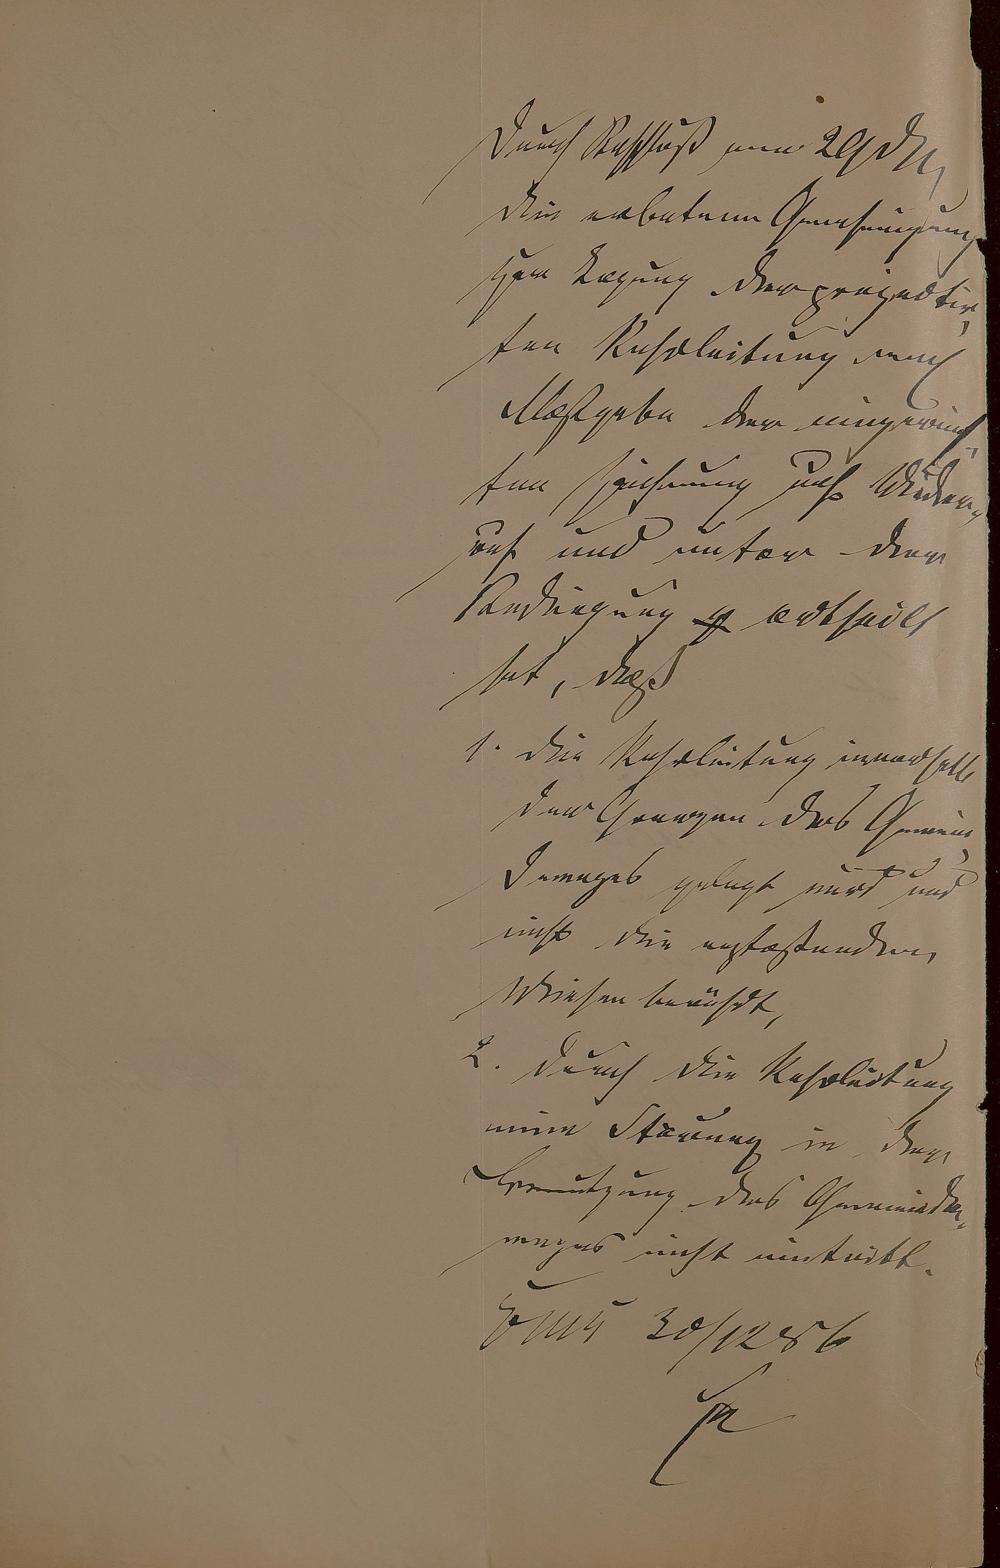 durch Beschluß vom 29 d. M.
die erbetene Genehmigung
zur Legung der projectir-
ten Rohrleitung nach
Maßgabe der eingereich-
ten Zeichnung auf Wider-
ruf und unter der
Bedingung ertheilt
hat, daß
1. die Rohrleitung innerhalb
der Grenzen des Gemein-
deweges gelegt wird und
nicht die anstoßenden
Wiesen berührt,
2. durch die Rohrleitung
eine Störung in der
Benutzung des Gemeinde-
weges nicht eintritt.
30/12 86